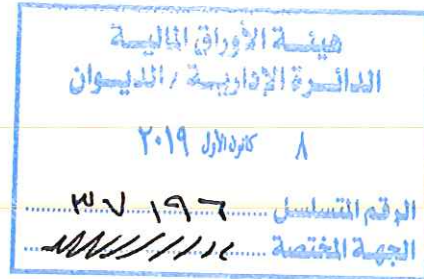 هيئة الأوراق المالية
الدائرة الإدارية / الديوان
٨ كانون الأول ٢٠١٩
الرقم المتسلسل ٣٧١٩٦
الجهة المختصة